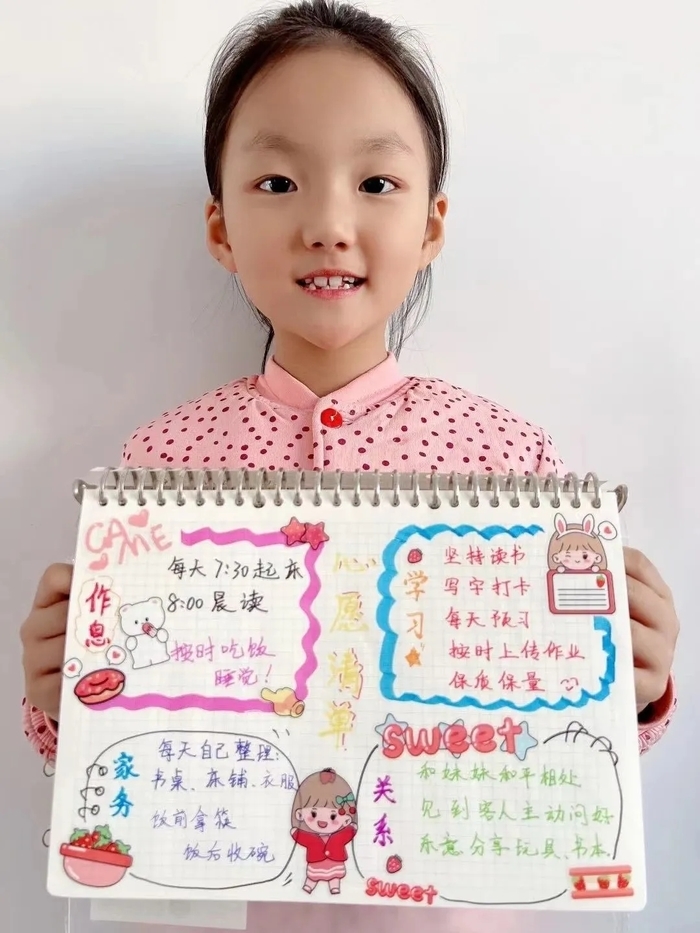 CAME
作息
每天7:30起床
8:00晨读
按时吃饭
睡觉!
心愿清单
学习
坚持读书
写字打卡
每天预习
按时上传作业
保质保量
家务
每天自己整理:
书桌、床铺、衣服
饭前拿筷
饭后收碗
sweet
关系
和妹妹和平相处
见到客人主动问好
乐意分享玩具、书本
sweet